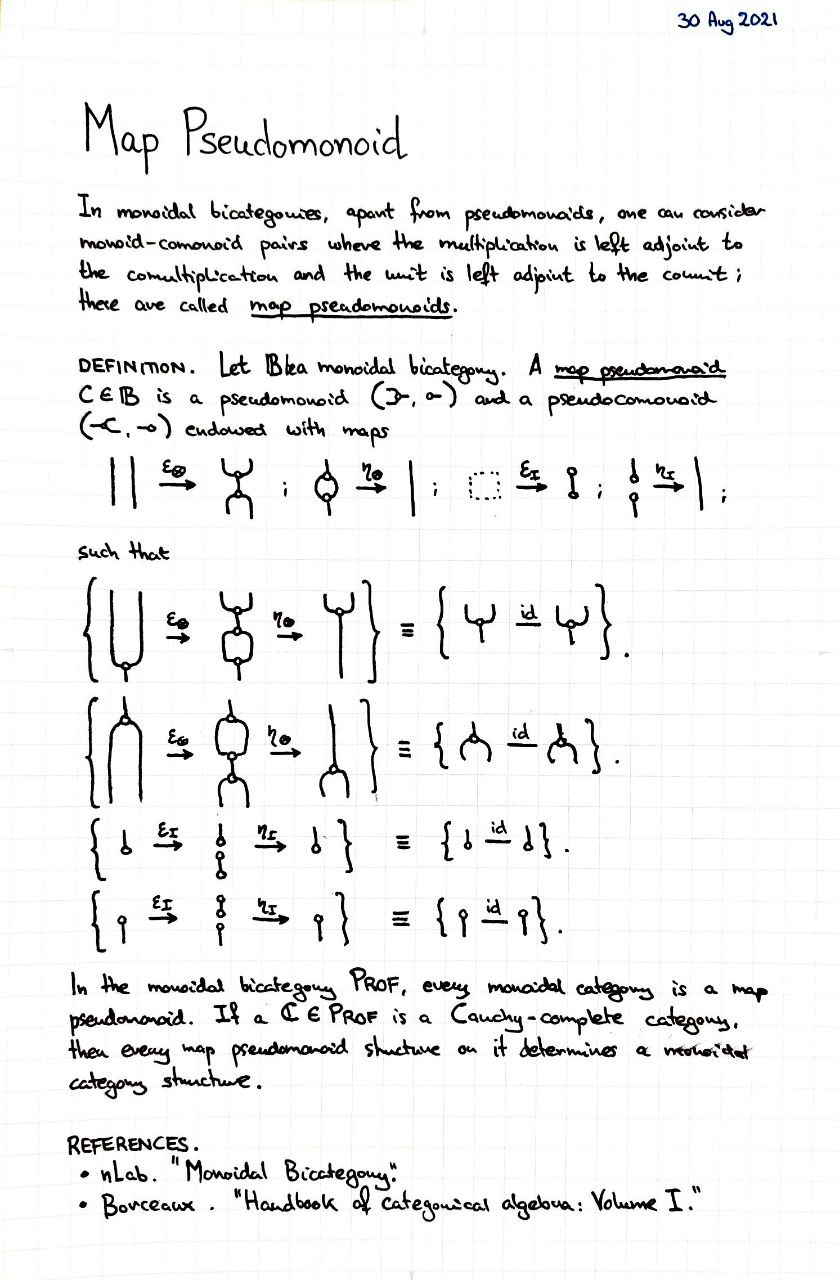 30 Aug 2021
Map Pseudomonoid
In monoidal bicategories, apart from pseudomonoids, one can consider
monoid-comonoid pairs where the multiplication is left adjoint to
the comultiplication and the unit is left adjoint to the counit;
these are called map pseudomonoids.
DEFINITION. Let 𝔹 be a monoidal bicategory. A map pseudomonoid
ℂ ∈ 𝔹 is a pseudomonoid (⪢, ⊸) and a pseudocomonoid
(⪡, ⊸) endowed with maps
ε⊗ ; η⊗ ; εI ; ηI ;
such that
{ ε⊗ η⊗ } ≡ { id }.
{ ε⊗ η⊗ } ≡ { id }.
{ εI ηI } ≡ { id }.
{ εI ηI } ≡ { id }.
In the monoidal bicategory PROF, every monoidal category is a map
pseudomonoid. If a ℂ ∈ PROF is a Cauchy-complete category,
then every map pseudomonoid structure on it determines a monoidal
category structure.
REFERENCES.
• nLab. "Monoidal Bicategory".
• Borceaux. "Handbook of categorical algebra: Volume I."